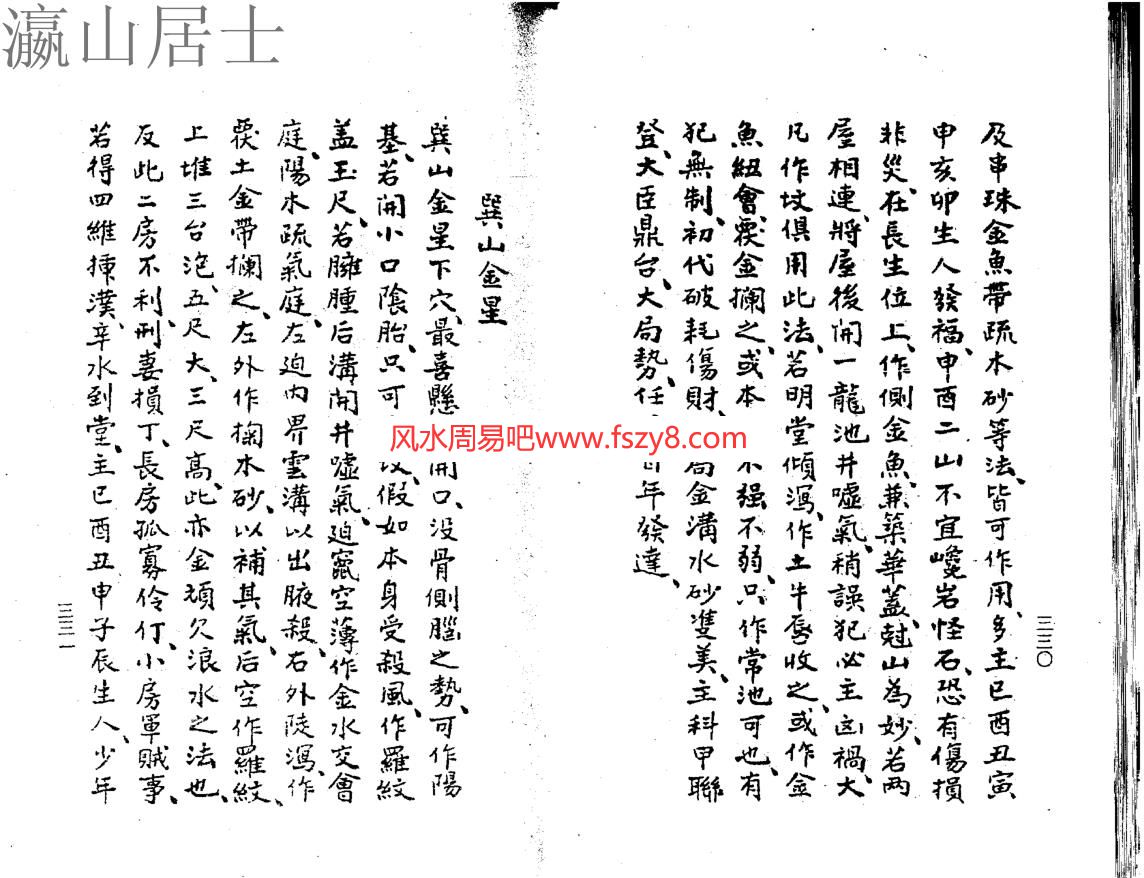 瀛山居士
及串珠金魚帶疏木砂等法、皆可作用、多主巳酉丑寅
申亥卯生人發福、申酉二山不宜巉岩怪石、恐有傷損
非災、在長生位上、作側金魚、兼築華蓋、尅山為妙、若两
屋相連、將屋後開一龍池井噓氣、稍誤犯必主凶禍、大
凡作坟俱用此法、若明堂傾瀉、作土牛唇收之、或作金
魚紐會、覆金攔之、或本 不强不弱、只作常池可也、有
犯無制、初代破耗傷財、 局金溝水砂雙美、主科甲聯
登、大臣鼎台、大局勢、任 年發達、
三三〇
巽山金星
巽山金星下穴、最喜懸 開口、没骨側腦之勢、可作陽
基、若開小口陰胎、只可 、假如本身受殺風、作羅紋
盖玉尺、若臃腫后溝開井噓氣、迫窟空薄作金水交會
庭、陽水疏氣庭、左迫内界雲溝以出腋殺、右外陡瀉、作
覆土金帶攔之、左外作掬木砂、以補其氣、后空作羅紋、
上堆三台泡、五尺大、三尺高、此亦金頑欠浪水之法也、
反此二房不利、刑妻損丁、長房孤寡伶仃、小房軍賊事、
若得四維 漢、辛水到堂、主巳酉丑申子辰生人、少年
三三一
风水周易吧www.fszy8.com